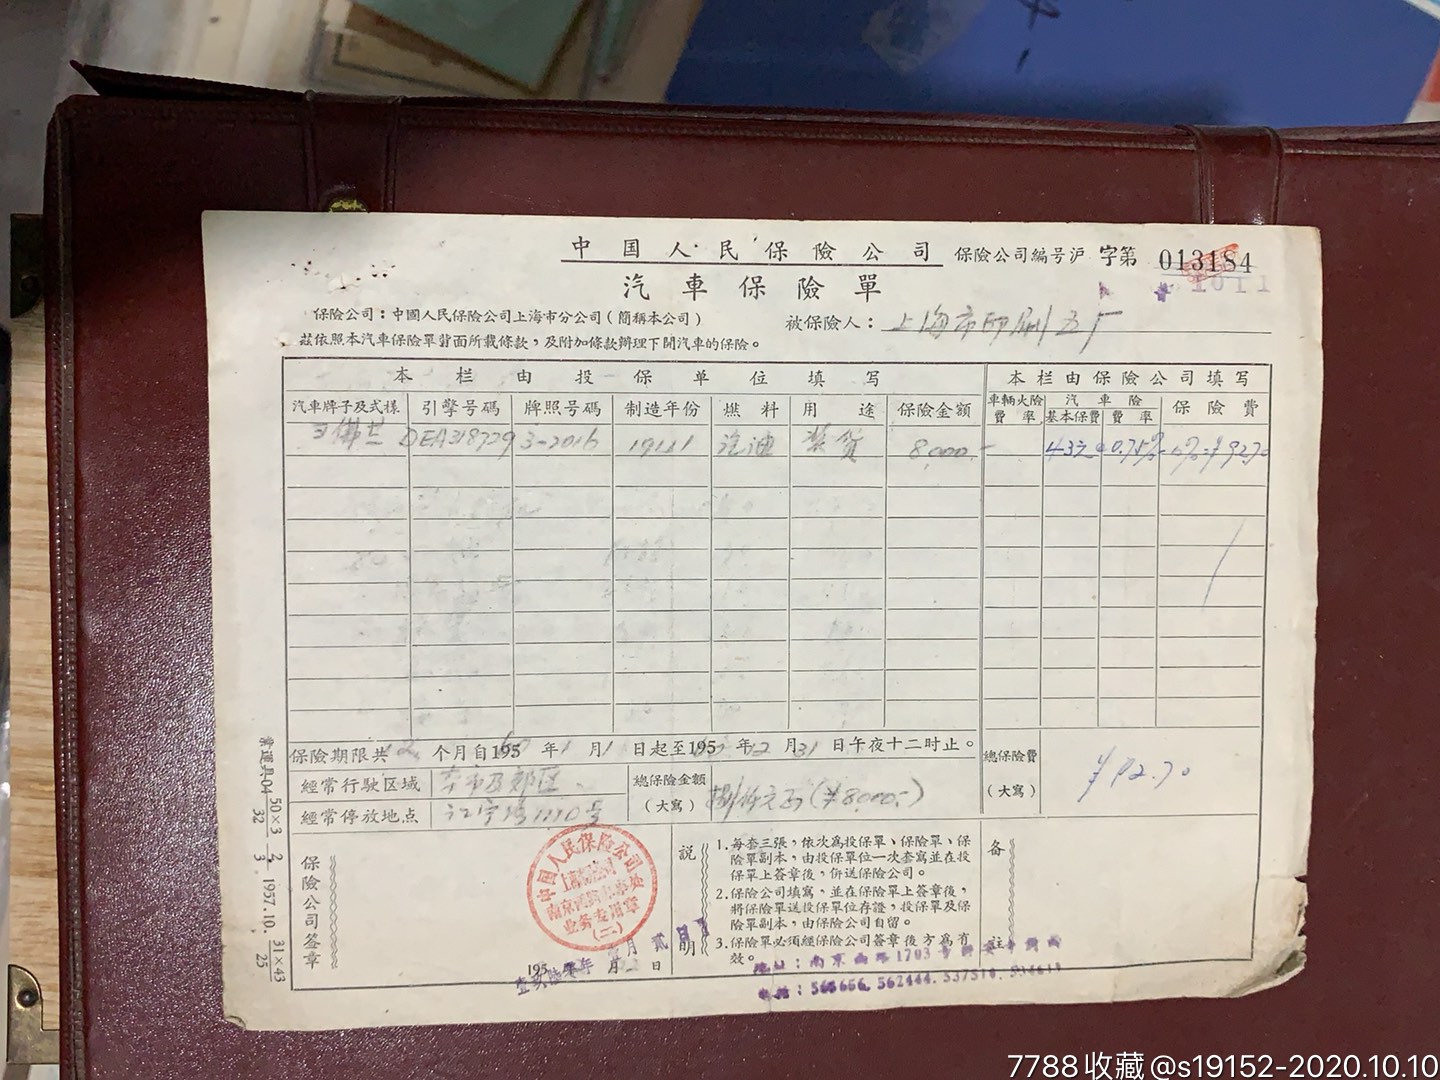 中国人民保險公司
保險公司編号沪 字第 013184
1011
汽車保險單
保險公司：中國人民保險公司上海市分公司（簡稱本公司）
被保險人：上海市印刷五厂
茲依照本汽車保險單背面所載條款，及附加條款辦理下開汽車的保險。
本栏由投保单位填写 本栏由保險公司填写
汽車牌子及式樣 引擎号碼 牌照号碼 制造年份 燃料 用途 保險金額 車輛火險費率 汽車險 基本保費 費率 保險費
DEA318729 3-2016 汽油 装貨 8,000.- 43元 0.75% ¥92.70
保險期限共12个月自195 年1月1日起至195 年12月31日午夜十二时止。
經常行駛区域 本市及郊区
總保險金額（大寫） 捌仟元正（¥8,000.-）
總保險費（大寫） ¥92.70
經常停放地点
保險公司签章
中国人民保险公司
上海市分公司
业务专用章
（二）
195 年 月 日
説明
1.每套三張，依次為投保單、保險單、保險單副本，由投保單位一次套寫並在投保單上簽章後，併送保險公司。
2.保險公司填寫，並在保險單上簽章後，將保險單送投保單位存證，投保單及保險單副本，由保險公司自留。
3.保險單必須經保險公司簽章後方為有效。
备註
地址：南京西路1703号
電話：565656.562444.537510.
1957.10.
7788收藏@s19152-2020.10.10